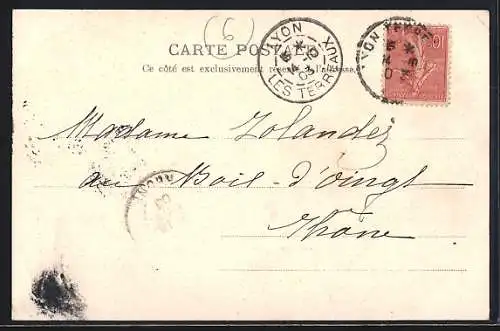 (6)
CARTE POSTALE
Ce côté est exclusivement réservé à l'adresse
LYON
LES TERREAUX
03
10
LYON
Madame Jolandez
au Bois-d'Oingt
Rhône